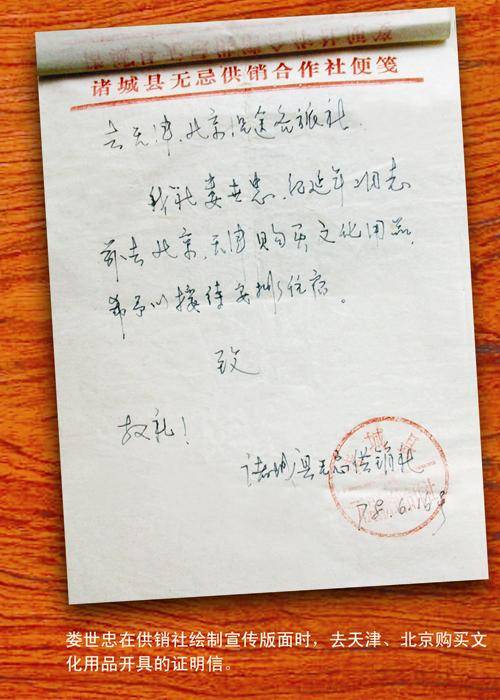 诸城县无忌供销合作社便笺
去天津、北京沿途各旅社
我社娄世忠、纪延年2同志
前去北京、天津购买文化用品,
希予以接待安排住宿。
致
敬礼!
诸城县无忌供销社
娄世忠在供销社绘制宣传版面时,去天津、北京购买文
化用品开具的证明信。